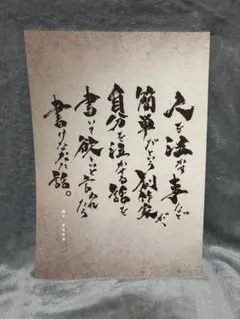 人を泣かす事など
簡単だという創作家が、
自分を泣かせる話を
書いて欲しいと言われたら
書けなかった話。